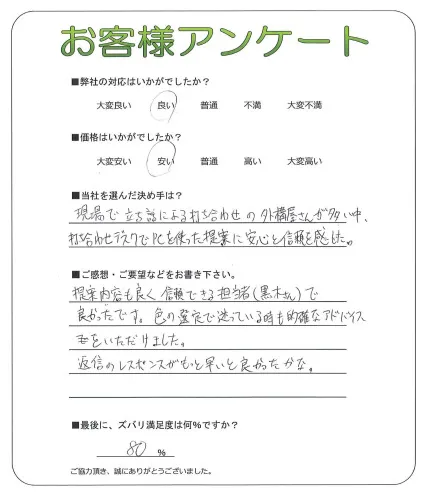 お客様アンケート
■弊社の対応はいかがでしたか?
大変良い 良い 普通 不満 大変不満
■価格はいかがでしたか?
大変安い 安い 普通 高い 大変高い
■当社を選んだ決め手は?
現場で立ち話による打ち合わせの外構屋さんが多い中、
打ち合わせデスクでPCを使った提案に安心と信頼を感じた。
■ご感想・ご要望などをお書き下さい。
提案内容も良く信頼できる担当者(黒木さん)で
良かったです。色の選定で迷っている時も的確なアドバイス
をいただけました。
返信のレスポンスがもっと早いと良かったかな。
■最後に、ズバリ満足度は何%ですか?
80 %
ご協力頂き、誠にありがとうございました。